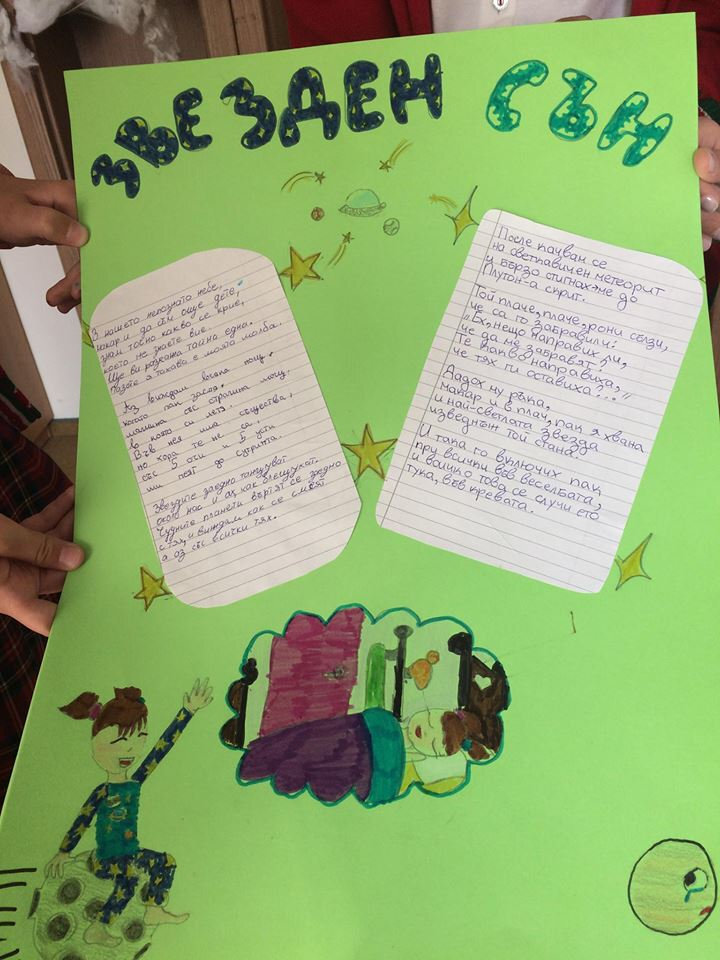 ЗВЕЗДЕН СЪН
В нашето непознато небе,
макар и да съм още дете,
знам точно какво се крие,
което не знаете вие.
Ще ви разкажа тайна една.
Пазете я такава е моята молба.
Аз виждам всяка нощ,
когато пак заспя.
машина със страшна мощ,
в която си летя.
Във нея има същества,
но хора те не са,
със 5 очи и 5 усти
ми пеят до сутринта.
Звездите заедно танцуват
около нас и ах, как блещукат.
Чудните планети въртят се заедно
с тях, и виждам как се смеят
а аз със всички тях.
После качвам се
на светкавичен метеорит
и бързо стигнах че до
Плутон-а скрит.
Той плаче, плаче, рони сълзи,
че са го забравили:
"Ех, нещо направих ли,
че да не забравят?
Те какво направиха,
че тях ги оставиха?..."
Дадох му ръка,
макар и в плач, пак я хвана
и най-светлата звезда
изведнъж той стана.
И така го включих пак
при всички във веселбата,
и всичко това се случи ето
тука, във кревата.